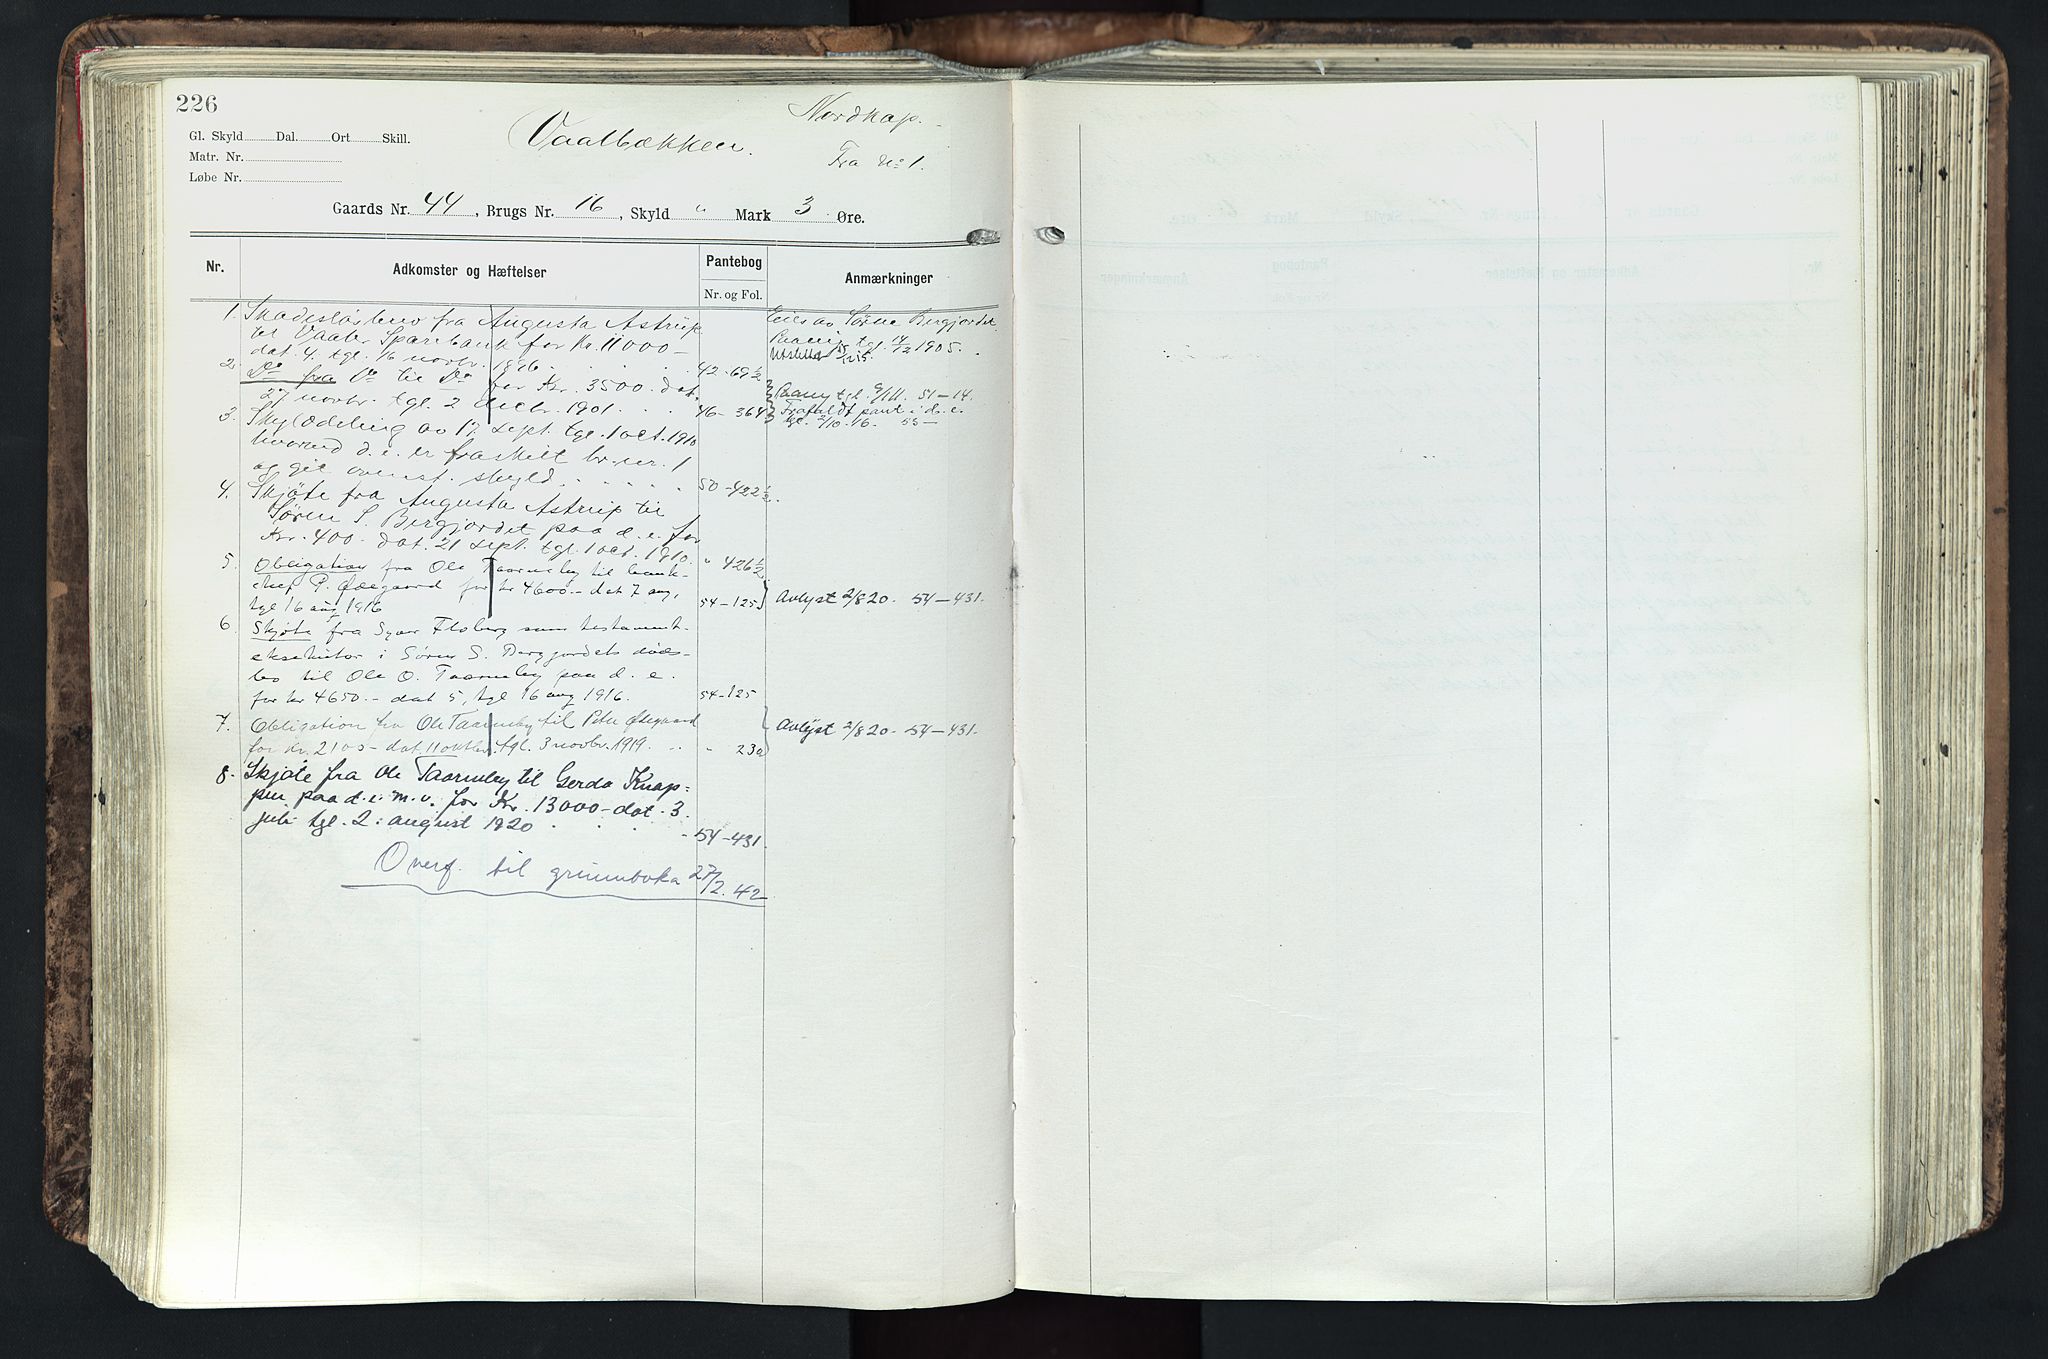 226
Nordkap.
Vaalbækken.
Fra No 1.
Gl. Skyld Dal. Ort Skill.
Matr. Nr.
Løbe Nr.
Gaards Nr. 44, Brugs Nr. 16, Skyld " Mark 3 Øre.
Nr. Adkomster og Hæftelser Pantebog Anmærkninger
Nr. og Fol.
1. Skadesløsbrev fra Augusta Astrup
til Vaaler Sparebank for Kr. 11000 -
dat. 4. tgl. 16 novbr. 1896 42 - 69½
Eies av Søren Bergjordet.
tgl. 14/12 1905.
2. Do fra Do til Do for Kr. 3500. dat.
27 novbr. tgl. 2 decbr. 1901. 46 - 364
tgl. 9/1 11. 51 - 14.
Frafaldt pant i d. e.
tgl. 2/10. 16. 55 -
3. Skylddeling av 17 sept. tgl. 1 oct. 1910
hvorved d. e. er fraskilt br. nr. 1
og git ovenst. skyld 50 - 422½.
4. Skjøte fra Augusta Astrup til
Søren S. Bergjordet paa d. e. for
Kr. 400. dat. 21 sept. tgl. 1 oct. 1910. " 426½
5. Obligation fra Ole Taarneby til bank-
chef P. Ødegaard for kr 4600.- dat 7 aug,
tgl 16 aug 1916 54 - 125
Avlyst 2/8 20. 54 - 431.
6. Skjøte fra Syver Floberg som testament-
eksekutor i Søren S. Bergjordets døds-
bo til Ole O. Taarneby paa d. e.
for kr 4650.- dat 5, tgl 16 aug 1916. 54 - 125
7. Obligation fra Ole Taarneby til Peter Ødegaard
for kr. 2100 - dat. 11 oktbr. tgl. 3 novbr. 1919. " 230
Avlyst 2/8 20. 54 - 431.
8. Skjøte fra Ole Taarneby til Gerda Knap=
pen paa d. e. m. v. for Kr. 13000 - dat. 3.
juli tgl. 2. august 1920 54 - 431.
Overf. til grunnboka 27/2. 42